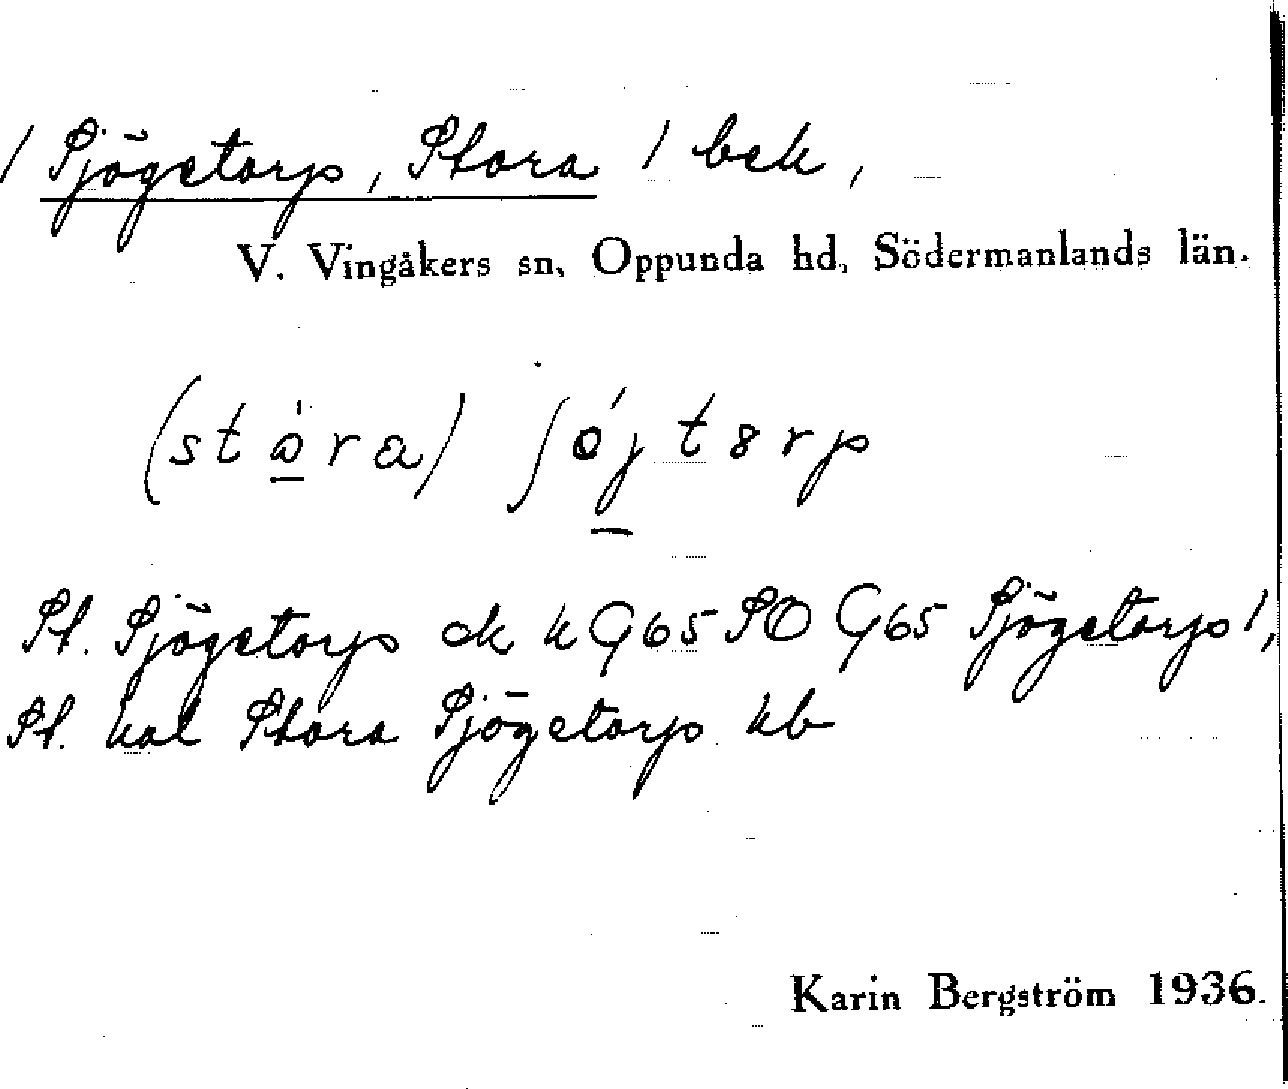 / Sjögetorp, Stora / bek,
V. Vingåkers sn, Oppunda hd, Södermanlands län.
(stora) ʃöjtərp
St. Sjögetorp ek k G65 SO G65 Sjögetorp /,
St. kal Stora Sjögetorp kb
Karin Bergström 1936.